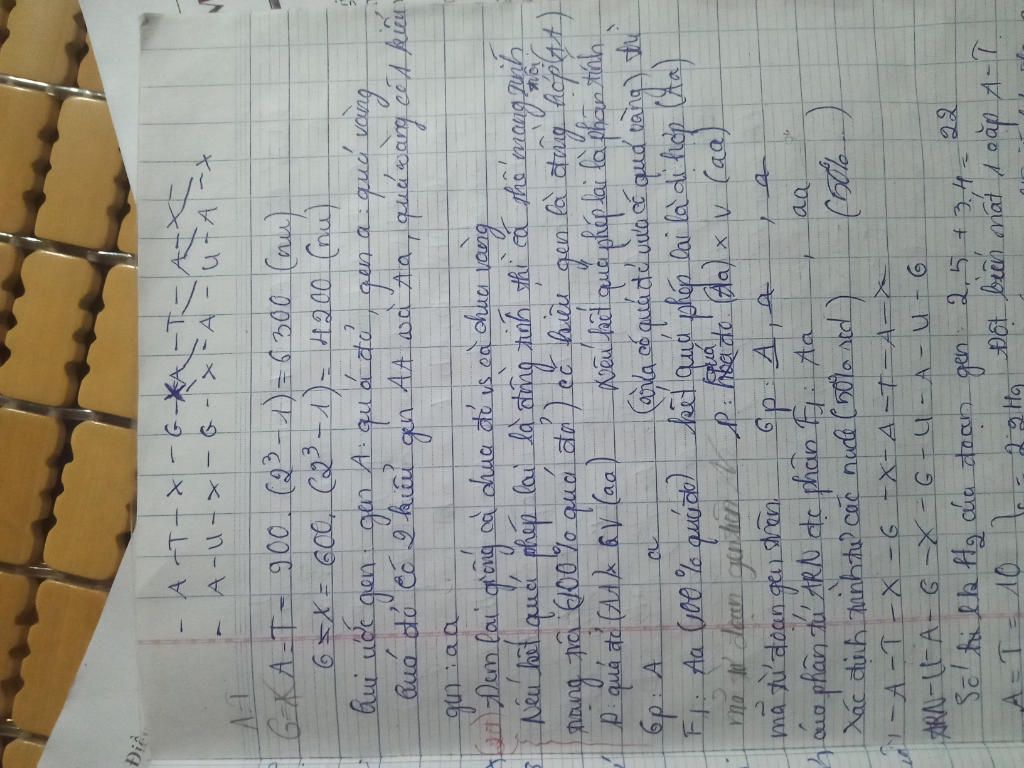 - A - T - X - G - A - T - A - X
- A - U - X - G - X = A - U - A - X
A=T
G-X A=T= 900. (2³-1)=6300 (nu)
G=X= 600. (2³-1)= 4200 (nu)
Qui ước gen: gen A: quả đỏ, gen a: quả vàng
Quả đỏ có 2 kiểu gen AA và Aa, quả vàng có 1 kiểu
gen: aa
Đem lai giống cà chua đỏ vs cà chua vàng
Nếu kết quả phép lai là đồng tính thì cá thể mang tính
trạng trội (100% quả đỏ) có kiểu gen là đồng hợp (AA)
P: quả đỏ (AA) x QV (aa) Nếu kết quả phép lai là phân tính
Gp: A a (vừa có quả đỏ vừa có quả vàng) thì
F1: Aa (100% quả đỏ) kết quả phép lai là dị hợp (Aa)
P: đỏ (Aa) x V (aa)
mã từ đoạn gen trên. Gp: A, a , a
phân tử ARN đc phân F1: Aa , aa
Xác định trình tự các nucl (50% red) (50%...)
- A - T - X - G - X - A - T - A - X
ARN - U - A - G - X - G - U - A - U - G
Số h lk H2 của đoạn gen: 2.5 + 3.4 = 22
A = T = 10 Đột biến mất 1 cặp A-T